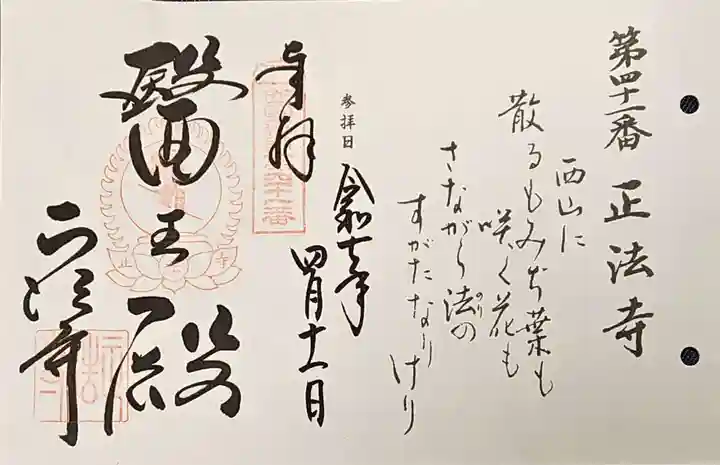 第四十一番 正法寺
西山に
散るもみぢ葉も
咲く花も
さながら法の
のり
すがたなりけり
参拝日
四月十一日
奉拝
醫王殿
正法寺